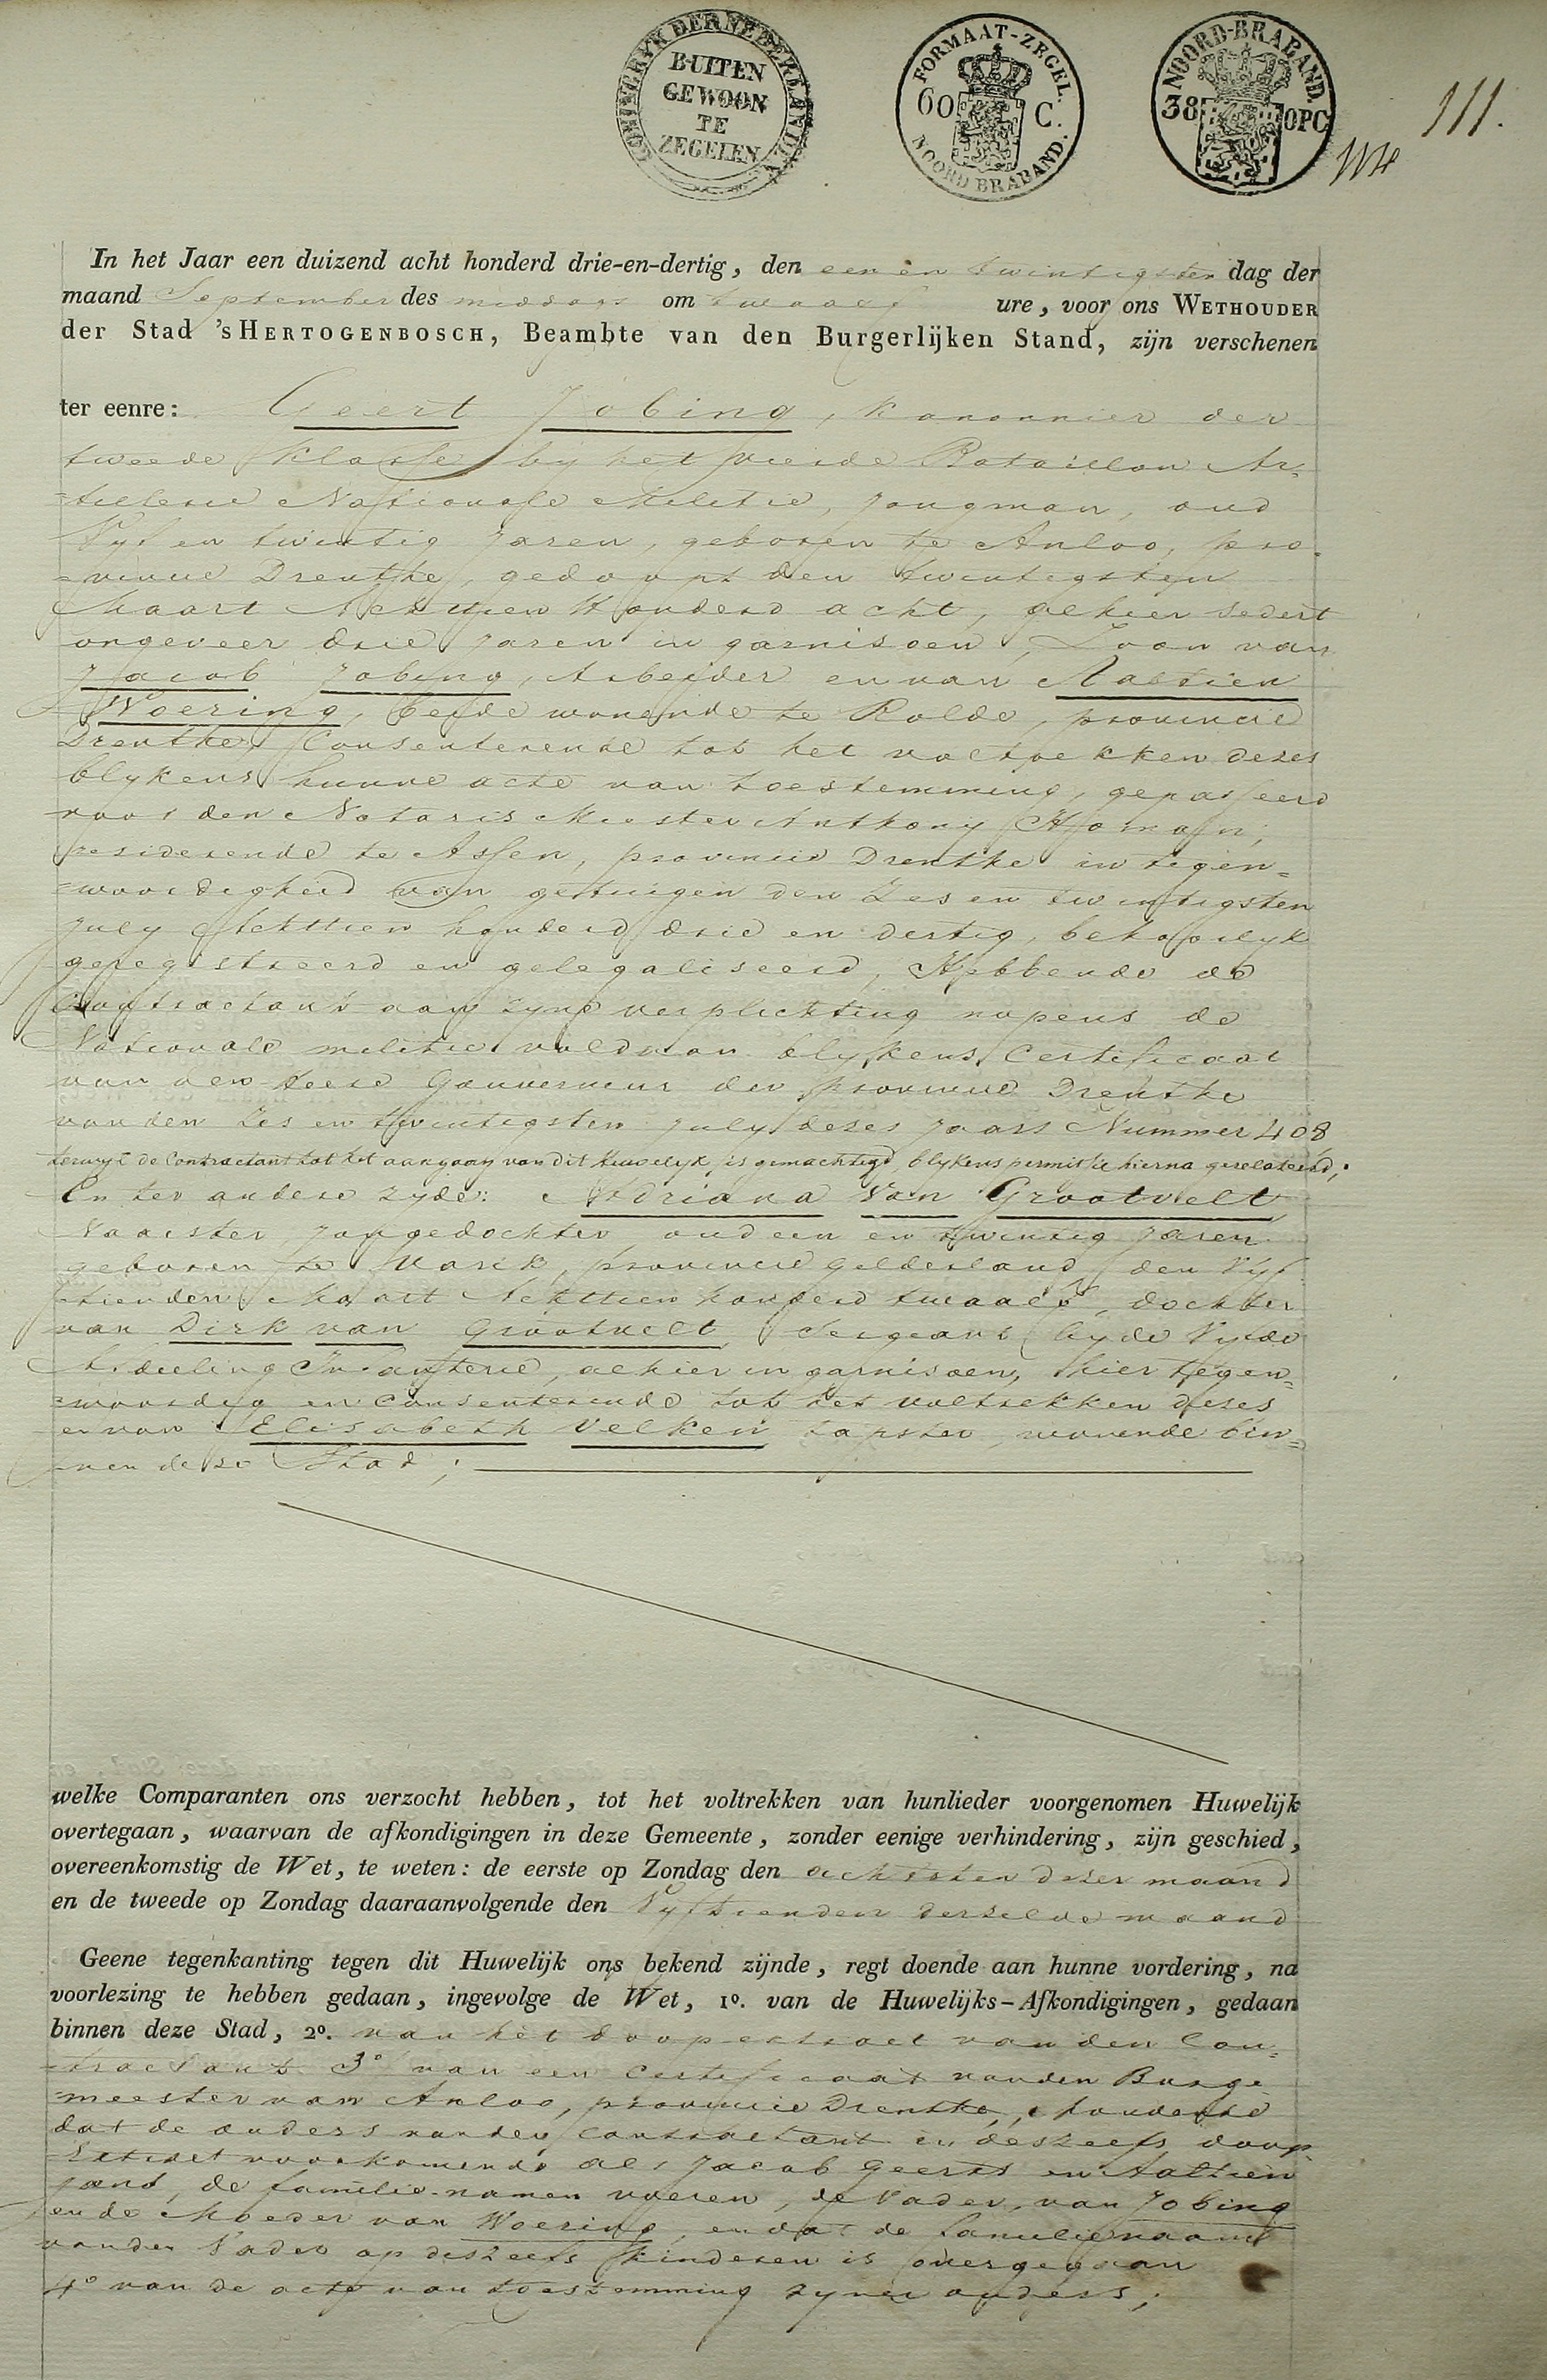 CONINGRYK DER NEDERLANDEN
BUITEN
GEWOON
TE
ZEGELEN
FORMAAT-ZEGEL.
60 C.
NOORD BRABAND.
NOORD-BRABAND.
38 OPC
111.
In het Jaar een duizend acht honderd drie-en-dertig, den een en twintigsten dag der
maand September des middags om twaalf ure, voor ons WETHOUDER
der Stad 'sHERTOGENBOSCH, Beambte van den Burgerlijken Stand, zijn verschenen
ter eenre: Geert Jobing, kanonnier der
tweede Klasse by het vierde Bataillon Ar=
=tillerie Nationale Militie, jongman, oud
Vyf en twintig jaren, geboren te Anloo, pro=
=vincie Drenthe, gedoopt den twintigsten
Maart Achttien Honderd acht, alhier sedert
ongeveer drie jaren in garnisoen, Zoon van
Jacob Jobing, Arbeider en van Aaltien
Woering, beide wonende te Rolde, provincie
Drenthe, Consenterende tot het voltrekken dezes
blykens hunne acte van toestemming, gepasseerd
voor den Notaris Meester Anthony Homan,
residerende te Assen, provincie Drenthe in tegen=
=woordigheid van getuigen den Zes en twintigsten
July Achttien honderd drie en dertig, behoorlyk
geregistreerd en gelegaliseerd, Hebbende de
Contractant aan zyne verplichting nopens de
Nationale militie voldaan blykens Certificaat
van den heere Gouverneur der provincie Drenthe
van den Zes en twintigsten July dezes jaars Nummer 408
terwyl de Contractant tot het aangaan van dit Huwelyk is gemachtigd, blykens permissie hierna gerelateerd;
En ter andere zyde: Adriana Van Grootvelt
Naaister jongedochter oud een en twintig jaren
geboren te Varik, provincie Gelderland, den Vyf
tienden Maart Achttien honderd twaalf, dochter
van Dirk van Grootvelt Sergeant by de Vyfde
Afdeeling Infanterie, alhier in garnisoen, hier tegen=
=woordig en Consenterende tot het voltrekken dezes
en van Elisabeth Velken tapster, wonende bin=
=nen deze Stad;
welke Comparanten ons verzocht hebben, tot het voltrekken van hunlieder voorgenomen Huwelijk
overtegaan, waarvan de afkondigingen in deze Gemeente, zonder eenige verhindering, zijn geschied,
overeenkomstig de Wet, te weten: de eerste op Zondag den achtsten dezer maand
en de tweede op Zondag daaraanvolgende den Vyftienden derzelve maand
Geene tegenkanting tegen dit Huwelijk ons bekend zijnde, regt doende aan hunne vordering, na
voorlezing te hebben gedaan, ingevolge de Wet, 1º. van de Huwelijks-Afkondigingen, gedaan
binnen deze Stad, 2º. van het doopextract van den Con=
=tractant 3º van een Certificaat van den Burge
=meester van Anloo, provincie Drenthe, houdende
dat de ouders van den Contractant in deszelfs doop
Extract voorkomende als Jacob Geerts en Aaltien
Jans, de familie-namen voeren, de Vader, van Jobing
en de Moeder van Woering, en dat de familienaam
van den Vader op deszelfs kinderen is overgegaan
4º van de acte van toestemming zyner ouders;